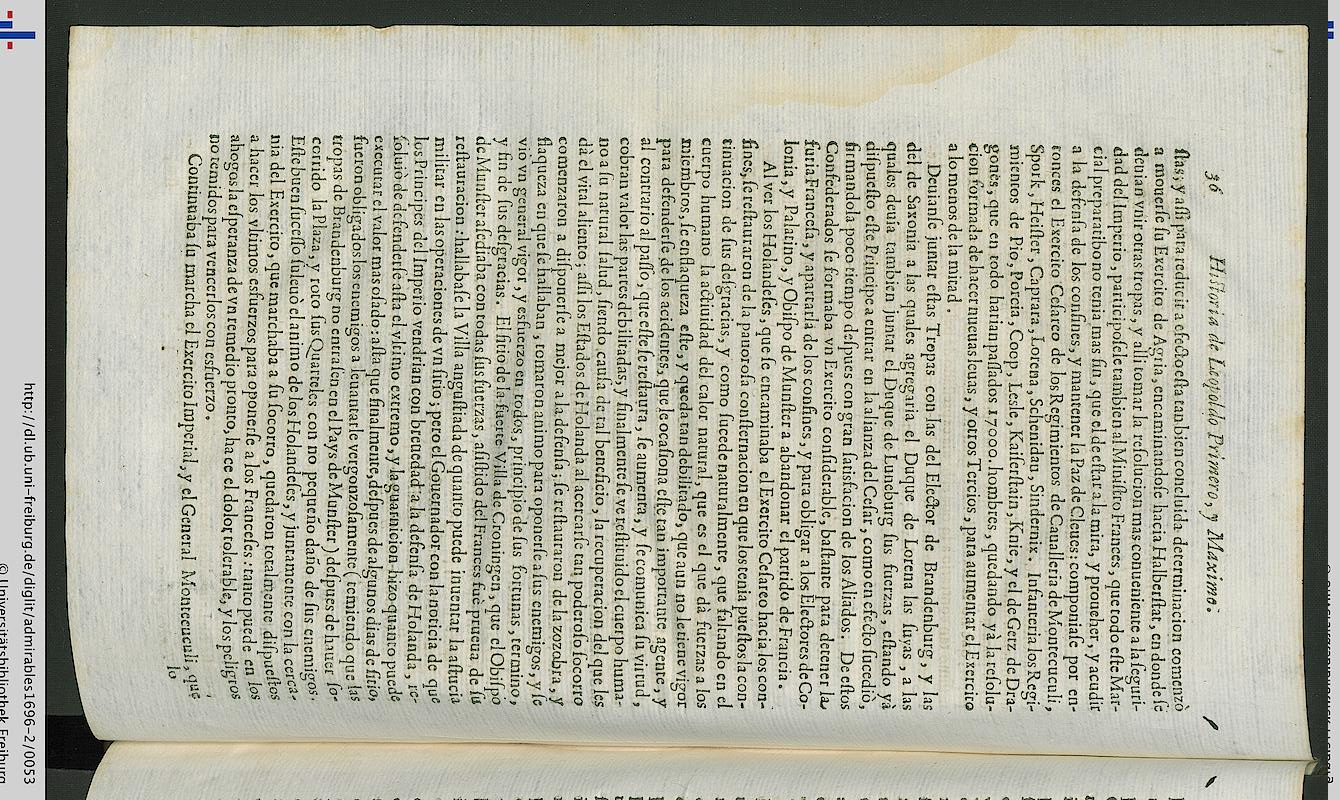 36 Historia de Leopoldo Primero, y Maximo.
stas, y assi para reducir a efecto esta tan bien concluida determinacion comenzò
a mouerse su Exercito de Agria, encaminandose hacia Halberstat, en donde se
deuian vnir otras tropas, y alli tomar la resolucion mas conueniente a la seguri-
dad del Imperio, participòse tambien al Ministro Frances, que todo este Mar-
cial preparatibo no tenia mas fin, que el de estar a la mira, y proueher, y acudir
a la defensa de los confines, y mantener la Paz de Cleues: componiase por en-
tonces el Exercito Cesareo de los Regimientos de Caualleria de Montecuculi,
Spork, Heister, Caprara, Lorena, Schenidau, Sindernix. Infanteria los Regi-
mientos de Pio, Porcia, Coop, Lesle, Kaiserstain, Knie, y el de Gerz de Dra-
gones, que en todo harian passados 17000. hombres, quedando yà la resolu-
cion formada de hacer nueuas leuas, y otros Tercios, para aumentar el Exercito
a lo menos de la mitad.
Deuianse juntar estas Tropas con las del Elector de Brandenburg, y las
del de Saxonia a las quales agregaria el Duque de Lorena las suyas, a las
quales deuia tambien juntar el Duque de Luneburg sus fuerzas, estando yà
dispuesto este Principe a entrar en la alianza del Cesar, como en efecto sucediò,
firmandola poco tiempo despues con gran satisfacion de los Aliados. De estos
Confederados se formaba vn Exercito considerable, bastante para detener la
furia Francesa, y apartarla de los confines, y para obligar a los Electores de Co-
lonia, y Palatino, y Obispo de Munster a abandonar el partido de Francia.
Al ver los Holandeses, que se encaminaba el Exercito Cesareo hacia los con-
fines, se restauraron de la pauorosa consternacion en que los tenia puestos la con-
tinuacion de sus desgracias, y como sucede naturalmente, que faltando en el
cuerpo humano la actiuidad del calor natural, que es el que dà fuerzas a los
miembros, se enflaqueza este, y queda tan debilitado, que aun no le tiene vigor
para defenderse de los acidentes, que le ocasiona este tan importante agente, y
al contrario al passo, que este se restaura, se aumenta, y se comunica su virtud,
cobran valor las partes debilitadas, y finalmente se ve restituido el cuerpo huma-
no a su natural salud, siendo causa de tal beneficio, la recuperacion del que les
dà el vital aliento; assi los Estados de Holanda al acercarse tan poderoso socorro
comenzaron a disponerse a mejor a la defensa; se restauraron de la zozobra, y
flaqueza en que se hallaban, tomaron animo para oponerse a sus enemigos, y se
viò vn general vigor, y esfuerzo en todos, principio de sus fortunas, termino,
y fin de sus desgracias. El sitio de la fuerte Villa de Croningen, que el Obispo
de Munster asediaba con todas sus fuerzas, assistido del Frances fuè prueua de su
restauracion: hallabase la Villa angustiada de quanto puede inuentar la astucia
militar en las operaciones de vn sitio, pero el Gouernador con la noticia de que
los Principes del Imperio vendrian con breuedad a la defensa de Holanda, re-
soluiò de defenderse asta el vltimo extremo, y la guarnicion hizo quanto puede
executar el valor mas osado: asta que finalmente, despues de algunos dias de sitio,
fueron obligados los enemigos a leuantarle vergonzosamente (temiendo que las
tropas de Brandenburg no entrassen en el Pays de Munster) despues de hauer so-
corrido la Plaza, y roto sus Quarteles con no pequeño daño de sus enemigos
Este buen sucesso suleuò el animo de los Holandeses, y juntamente con la cerca-
nia del Exercito, que marchaba a su socorro, quedaron totalmente dispuestos
a hacer los vltimos esfuerzos para oponerse a los Franceses: tanto puede en los
ahogos la esperanza de vn remedio pronto, hace el dolor tolerable, y los peligros
no temidos para vencerlos con esfuerzo.
Continuaba su marcha el Exercito Imperial, y el General Montecuculi, que
lo
http://dl.ub.uni-freiburg.de/diglit/admirables1696-2/0053
© Universitätsbibliothek Freiburg